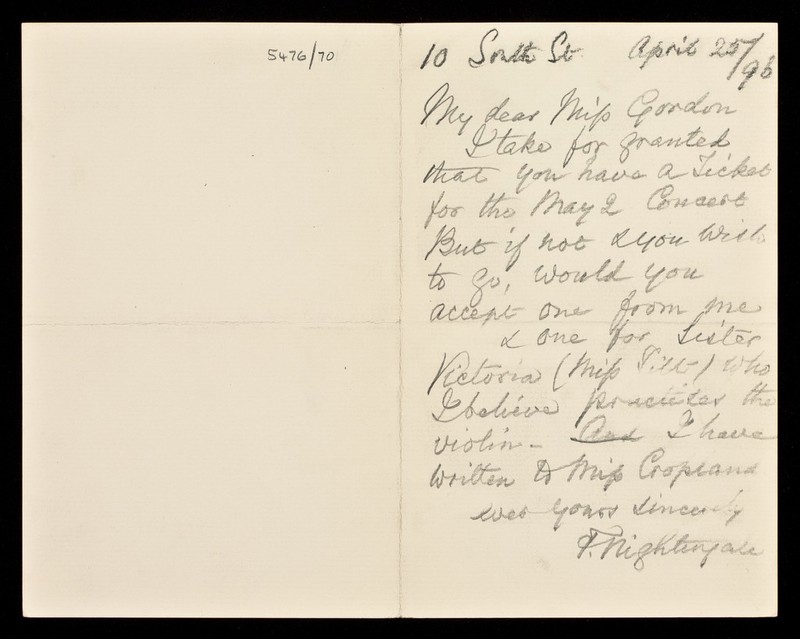 5476/70
10 South St April 25/96
My dear Miss Gordon
I take for granted
that you have a Ticket
for the May 2 Concert
But if not & you wish
to go, would you
accept one from me
& one for Sister
Victoria (Miss Tilt) who
I believe practises the
violin - And I have
written to Miss Crossland
ever yours sincerely
F. Nightingale